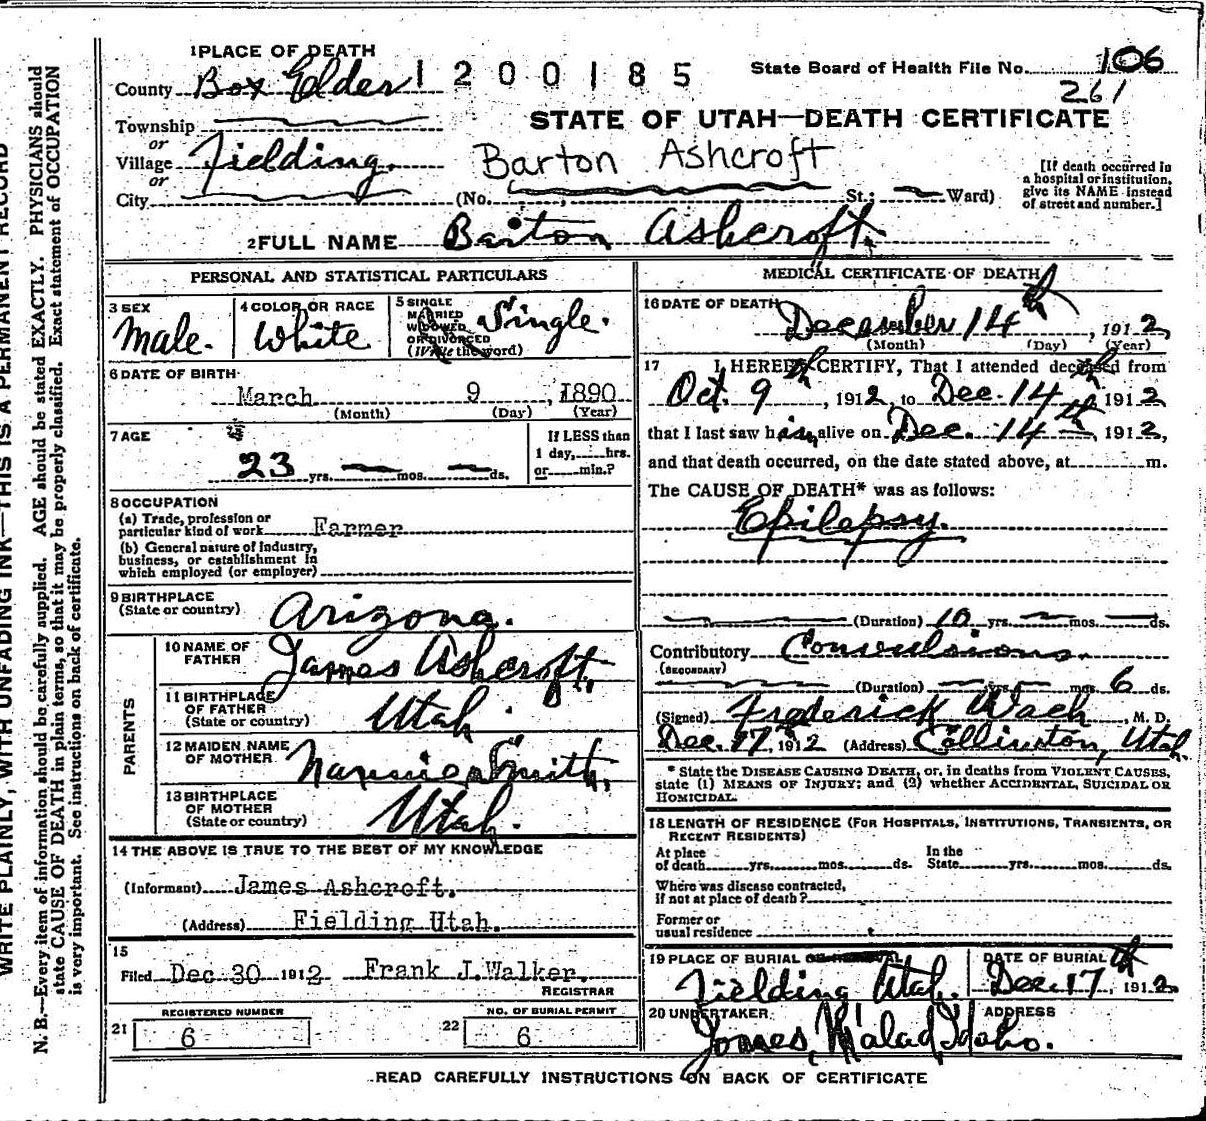 1 PLACE OF DEATH
County Box Elder 1200185 State Board of Health File No. 106
261
Township
STATE OF UTAH—DEATH CERTIFICATE
or
Village Fielding. Barton Ashcroft
or
City (No. St.; Ward)
[If death occurred in a hospital or institution, give its NAME instead of street and number.]
2 FULL NAME Barton Ashcroft.
PERSONAL AND STATISTICAL PARTICULARS
3 SEX Male.
4 COLOR OR RACE White
5 SINGLE MARRIED WIDOWED OR DIVORCED (Write the word) Single.
6 DATE OF BIRTH
March 9, 1890
(Month) (Day) (Year)
7 AGE
23 yrs. mos. ds.
If LESS than 1 day, hrs. or min.?
8 OCCUPATION
(a) Trade, profession or particular kind of work Farmer
(b) General nature of industry, business, or establishment in which employed (or employer)
9 BIRTHPLACE (State or country) Arizona.
PARENTS
10 NAME OF FATHER James Ashcroft.
11 BIRTHPLACE OF FATHER (State or country) Utah.
12 MAIDEN NAME OF MOTHER Nannie Smith,
13 BIRTHPLACE OF MOTHER (State or country) Utah.
14 THE ABOVE IS TRUE TO THE BEST OF MY KNOWLEDGE
(Informant) James Ashcroft.
(Address) Fielding Utah.
15
Filed Dec 30 1912 Frank J. Walker,
REGISTRAR
REGISTERED NUMBER
21 6
NO. OF BURIAL PERMIT
22 6
MEDICAL CERTIFICATE OF DEATH
16 DATE OF DEATH
December 14th, 1912
(Month) (Day) (Year)
17 I HEREBY CERTIFY, That I attended deceased from
Oct. 9th, 1912, to Dec. 14th 1912
that I last saw him alive on Dec. 14th 1912,
and that death occurred, on the date stated above, at m.
The CAUSE OF DEATH* was as follows:
Epilepsy.
(Duration) 10 yrs. mos. ds.
Contributory Convulsions.
(SECONDARY)
(Duration) yrs. mos. 6 ds.
(Signed) Frederick Wach, M. D.
Dec. 17, 1912 (Address) Collinston, Utah.
* State the DISEASE CAUSING DEATH, or, in deaths from VIOLENT CAUSES, state (1) MEANS OF INJURY; and (2) whether ACCIDENTAL, SUICIDAL OR HOMICIDAL.
18 LENGTH OF RESIDENCE (FOR HOSPITALS, INSTITUTIONS, TRANSIENTS, OR RECENT RESIDENTS)
At place of death yrs. mos. ds. In the State yrs. mos. ds.
Where was disease contracted, if not at place of death?
Former or usual residence
19 PLACE OF BURIAL OR REMOVAL
Fielding Utah.
DATE OF BURIAL
Dec. 17th, 1912
20 UNDERTAKER ADDRESS
Jones, Malad, Idaho.
READ CAREFULLY INSTRUCTIONS ON BACK OF CERTIFICATE
WRITE PLAINLY, WITH UNFADING INK—THIS IS A PERMANENT RECORD
N. B.—Every item of information should be carefully supplied. AGE should be stated EXACTLY. PHYSICIANS should
state CAUSE OF DEATH in plain terms, so that it may be properly classified. Exact statement of OCCUPATION
is very important. See instructions on back of certificate.